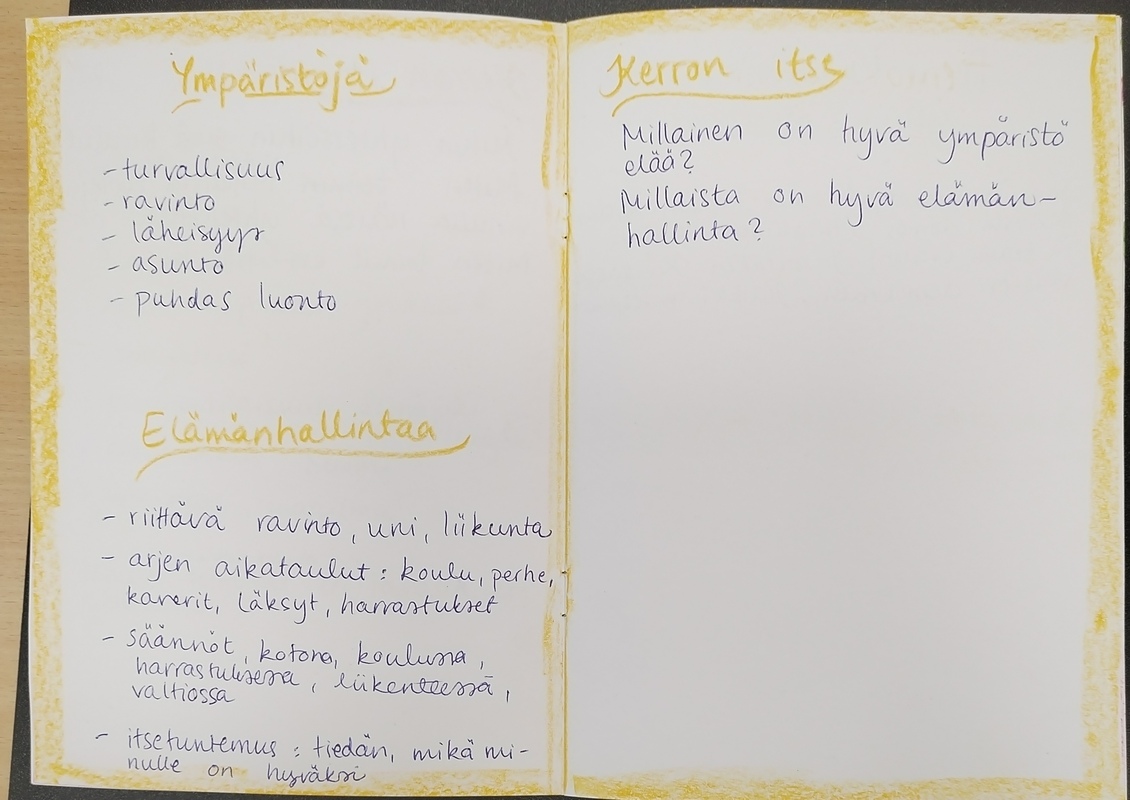 Ympäristöjä
- turvallisuus
- ravinto
- läheisyys
- asunto
- puhdas luonto
Elämänhallintaa
- riittävä ravinto, uni, liikunta
- arjen aikataulut: koulu, perhe,
kaverit, läksyt, harrastukset
- säännöt, kotona, koulussa,
harrastuksessa, liikenteessä,
valtiossa
- itsetuntemus: tiedän, mikä mi-
nulle on hyväksi
Kerron itse
Millainen on hyvä ympäristö
elää?
Millaista on hyvä elämän-
hallinta?